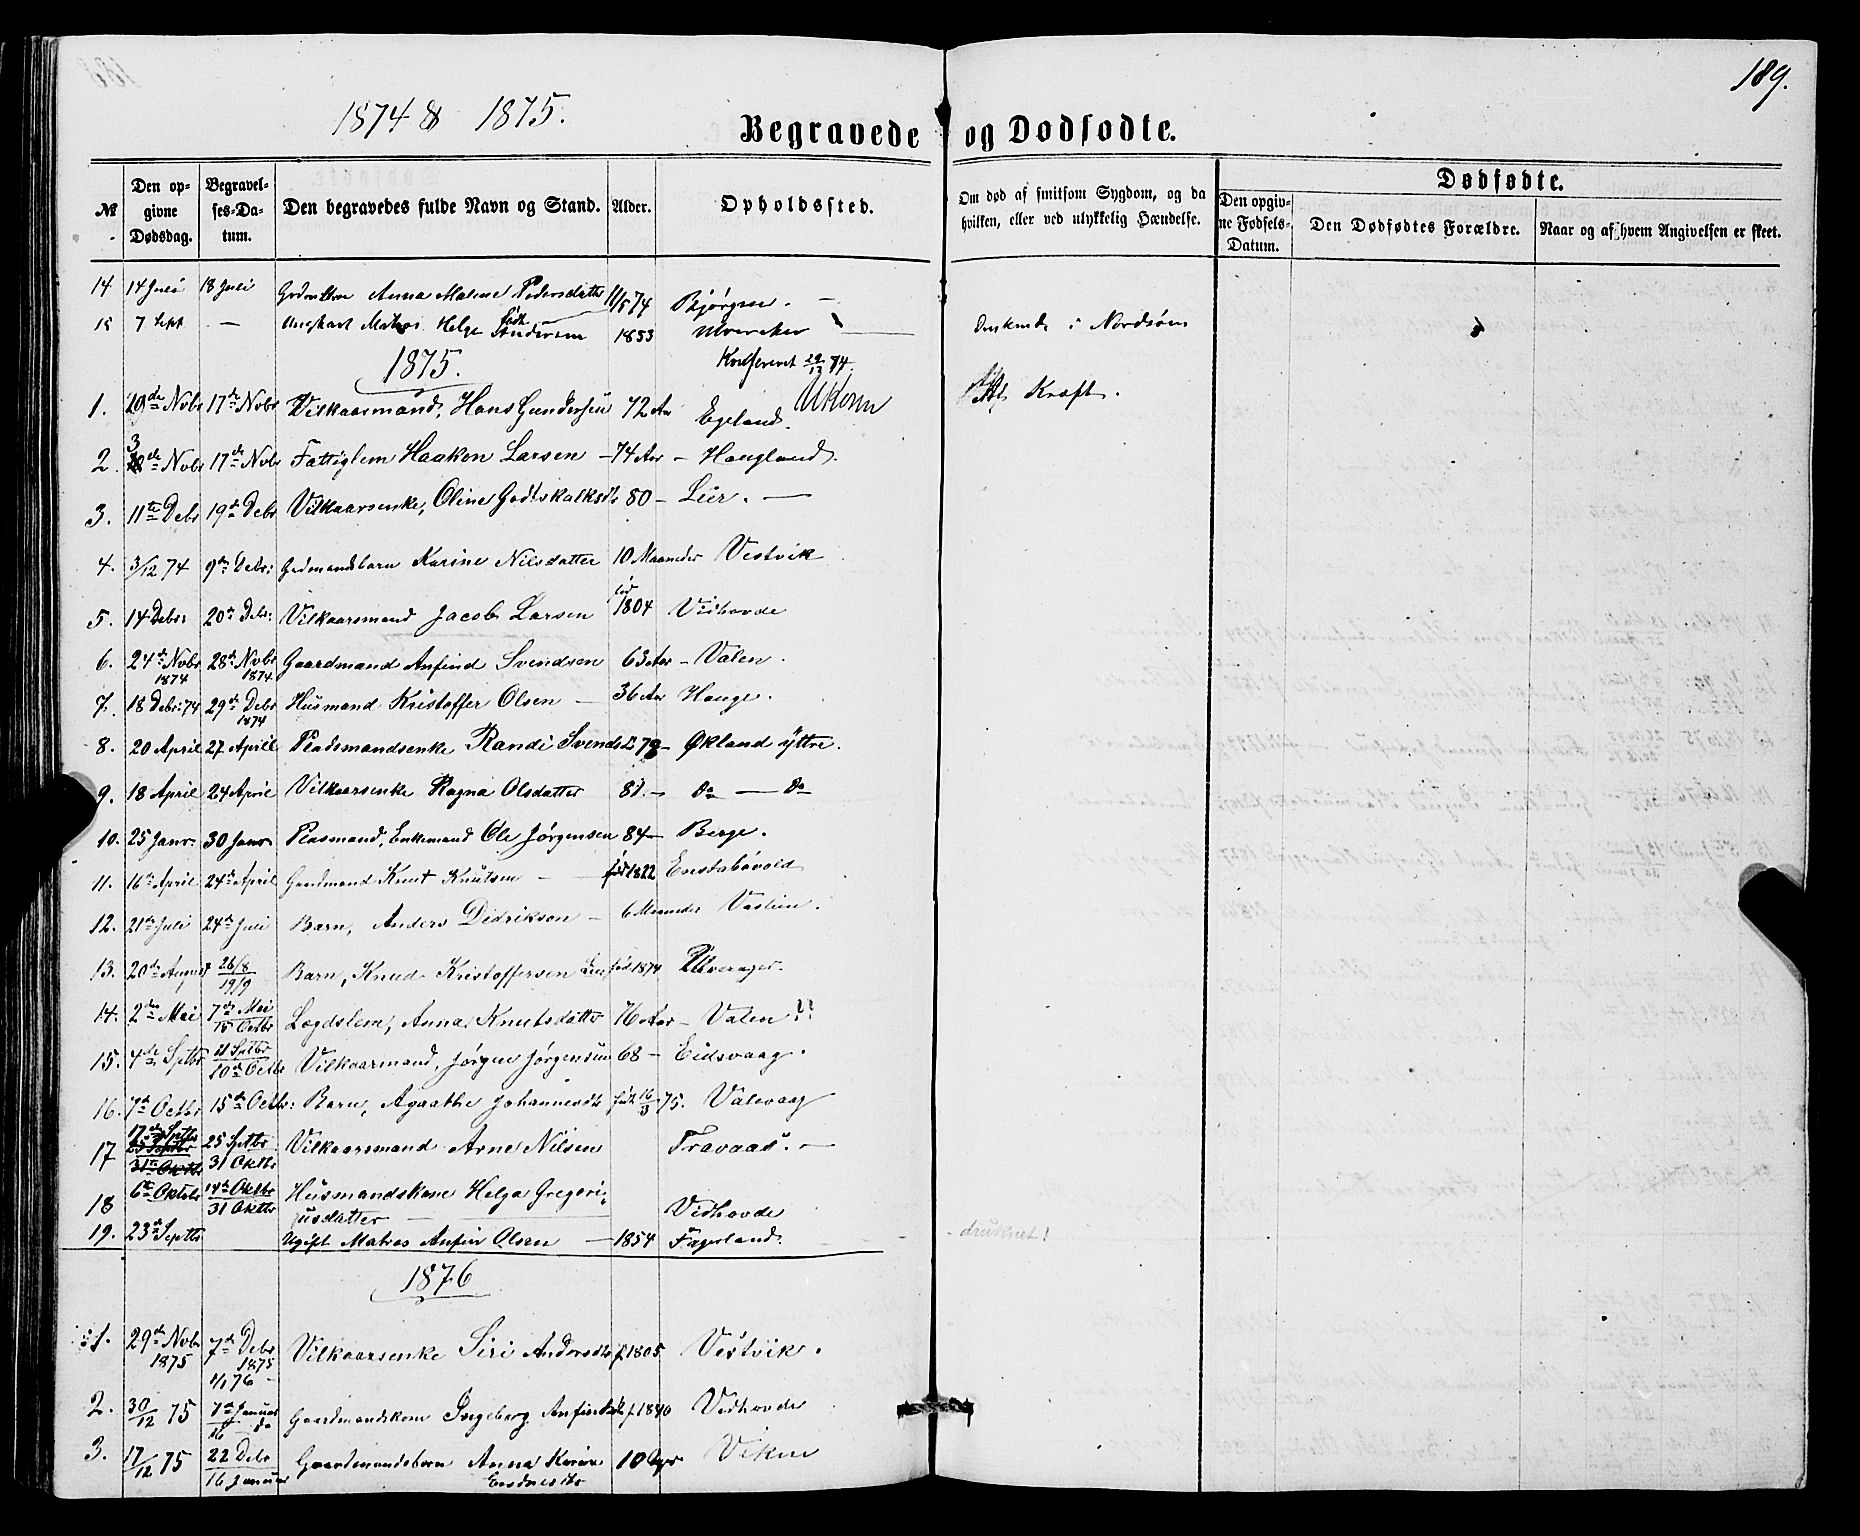 189.
1874 & 1875.
Begravede og Dødfødte.
№ Den opgivne Dødsdag. Begravelses-Datum. Den begravedes fulde Navn og Stand. Alder. Opholdssted. Om død af smitsom Sygdom, og da hvilken, eller ved ulykkelig Hændelse. Dødfødte. Den opgivne Fødsels-Datum. Den Dødfødtes Forældre. Naar og af hvem Angivelsen er skeet.
14 14 Juli 18 Juli Anna Malene Pedersdatter 11/5 74 Bjørgen. —
15 7 Sept — Matros Helge Andersen 1853 — i Nordsøen
1875. 29/12 74.
1. 10de Nobr 17de Nobr Vilkaarsmand, Hans Gundersen 72 Aar Egeland. Kræft.
2. 3de Nobr 17de Nobr Fattiglem Haakon Larsen — 74 Aar — Haugland.
3. 11te Debr 19de Debr Vilkaarsenke, Oline Godtskalksdtr 80 — Lier. —
4. 3/12 74 9de Debr: Gdmandsbarn Karine Nilsdatter 10 Maaneder Vestvik
5. 14 Debr: 20de Debr: Vilkaarsmand Jacob Larsen fød 1804 Vidhovde
6. 24de Nobr 1874 28de Nobr 1874 Gaardmand Anfind Svendsen 63 Aar — Valen.
7. 18 Debr: 74 29de Debr 1874 Husmand Kristoffer Olsen — 36 Aar Hauge.
8. 20 April 27 April Pladsmandsenke Randi Svendsd 78 — Økland yttre.
9. 18 April 24 April Vilkaarsenke Ragna Olsdatter 81. — Do — Do
10. 25 Janr. 30 Janr Plasmand, Enkemand Ole Jørgensen 84 — Berge.
11. 16de April 24de April Gaardmand Knut Knutsen — født 1822 Enstabøvold
12. 21de Juli 24de Juli Barn, Anders Didrikson — 6 Maaneder
13. 20de August 26/8 19/9 Barn, Knud Kristoffersen født 1874
14. 2den Mai 7de Mai 15 Octbr Lægdslem, Anna Knutsdattr 76 Aar — Valen
15. 4de Septbr 11 Septbr 10de Octbr Vilkaarmand, Jørgen Jørgensen 68 — Eidsvaag.
16. 7de Octbr 15de Octbr: Barn, Agaathe Johannesdtr født 16/3 75. Valevaag
17 17de Septbr 25 Septbr 31 Oktbr Vilkaarsmand Arne Nilsen Travaas. —
18 6te Oktobr 14de Oktbr 31 Oktbr Husmandskone Helga Gregoriusdatter — Vidhovde
19. 23de Septbr Ugift Matros Anfin Olsen — 1854 Fagerland. druknet!
1876
1. 29de Nobr 1875 7de Debr 1875 1/1 76 Vilkaarsenke Siri Andersdtr f. 1805 Vestvik.
2. 30/12 75 7de Januar 16 do Gaardmandskone Ingeborg f. 1840 Vidhovde
3. 17/12 75 22 Debr 16 Januar Gaardmandsbarn Anna Karine 10 Viken